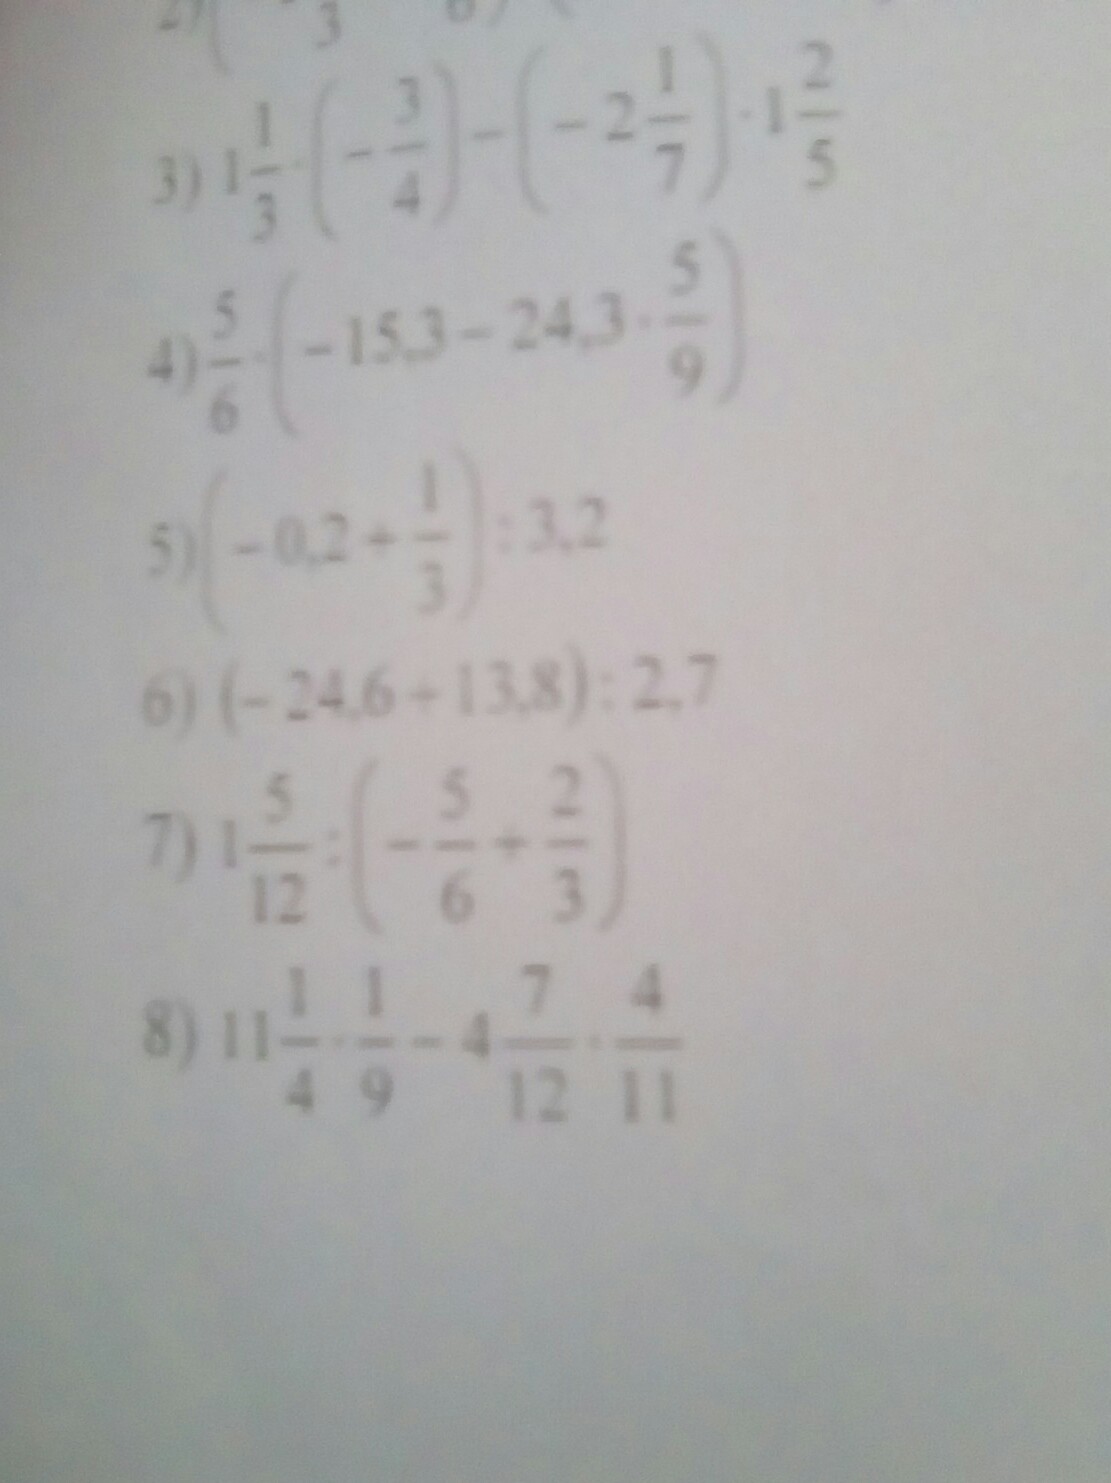 3) 1 1/3 · (− 3/4) − (− 2 1/7) · 1 2/5
4) 5/6 · (− 15,3 − 24,3 · 5/9)
5) (− 0,2 + 1/3) : 3,2
6) (− 24,6 + 13,8) : 2,7
7) 1 5/12 : (− 5/6 + 2/3)
8) 11 1/4 · 1/9 − 4 7/12 · 4/11